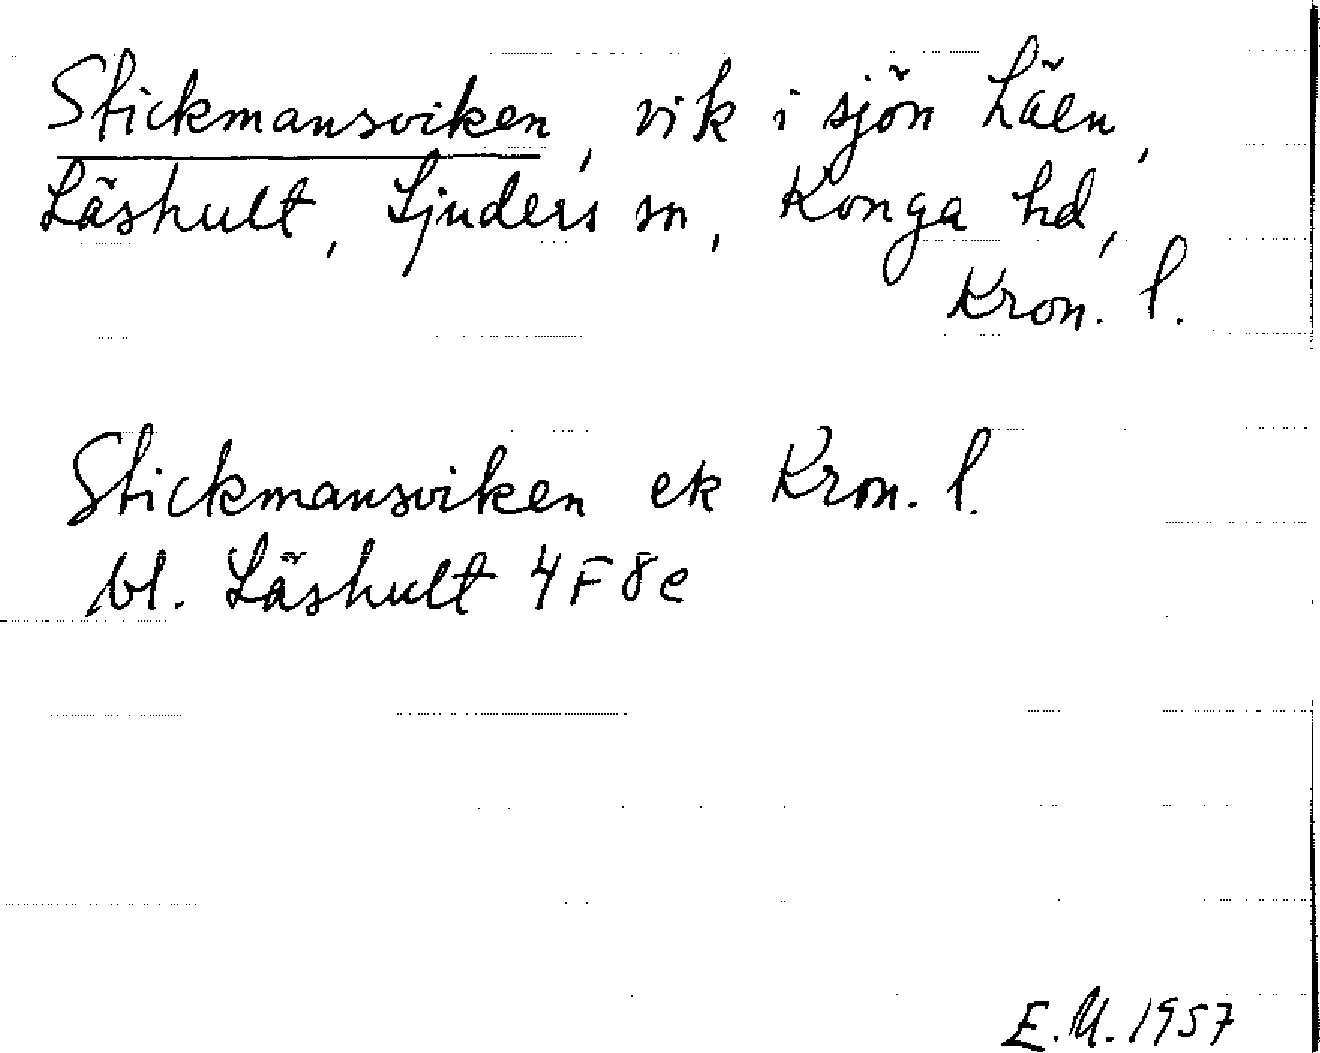 Stickmansviken, vik i sjön Läen,
Läshult, Ljuders sn, Konga hd,
Kron. l.
Stickmansviken ek Kron. l.
bl. Läshult 4F8e
E.U. 1957